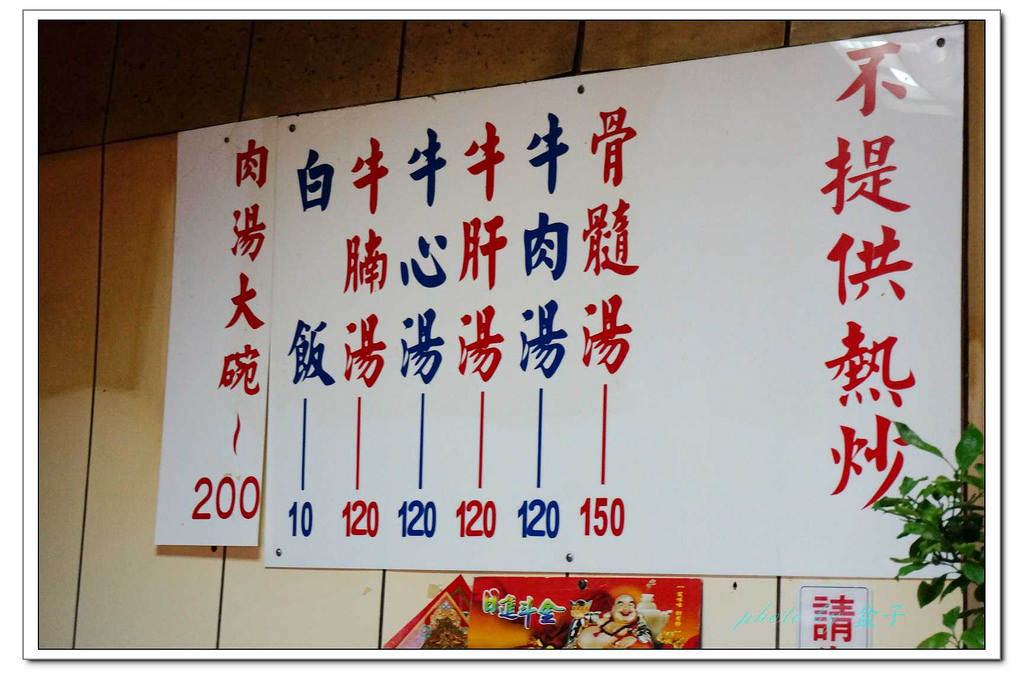 不提供熱炒
骨髓湯 150
牛肉湯 120
牛肝湯 120
牛心湯 120
牛腩湯 120
白飯 10
肉湯大碗~200
日進斗金
請